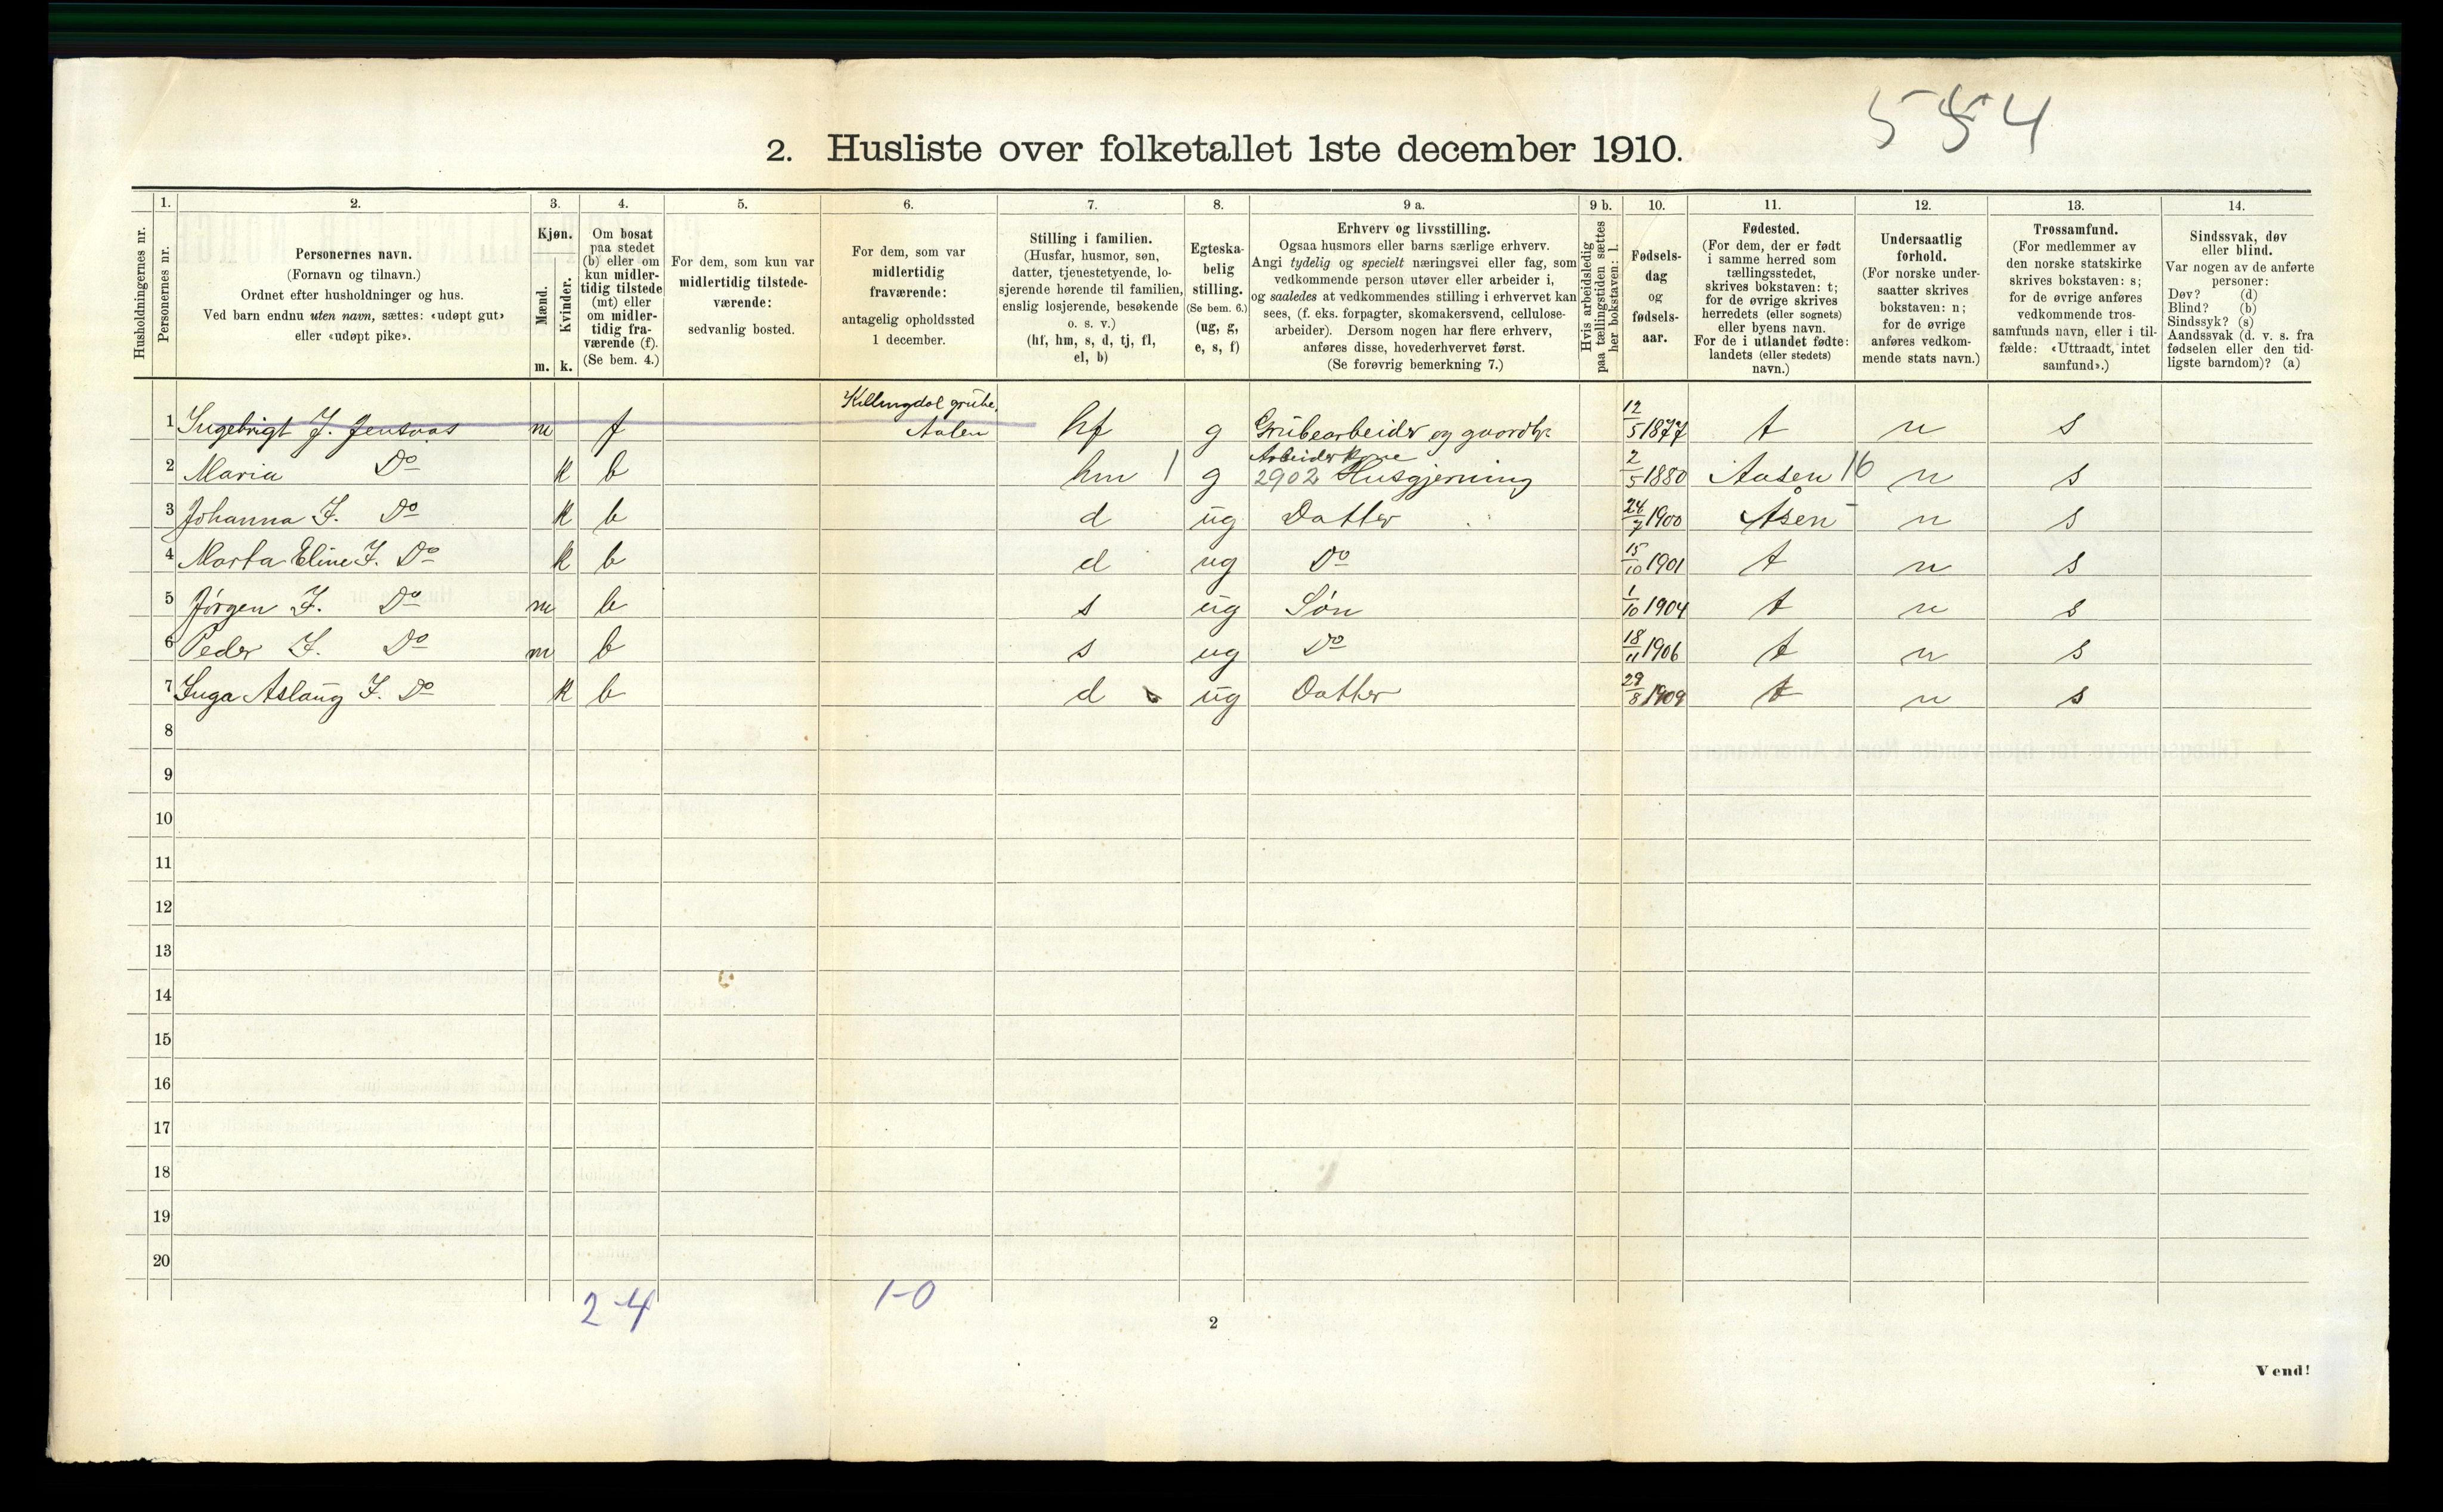 554
2. Husliste over folketallet 1ste december 1910.
Husholdningernes nr.
1. Personernes nr.
2. Personernes navn.
(Fornavn og tilnavn.)
Ordnet efter husholdninger og hus.
Ved barn endnu uten navn, sættes: «udøpt gut»
eller «udøpt pike».
3. Kjøn.
Mænd. m.
Kvinder. k.
4. Om bosat
paa stedet
(b) eller om
kun midler-
tidig tilstede
(mt) eller
om midler-
tidig fra-
værende (f).
(Se bem. 4.)
5. For dem, som kun var
midlertidig tilstede-
værende:
sedvanlig bosted.
6. For dem, som var
midlertidig
fraværende:
antagelig opholdssted
1 december.
7. Stilling i familien.
(Husfar, husmor, søn,
datter, tjenestetyende, lo-
sjerende hørende til familien,
enslig losjerende, besøkende
o. s. v.)
(hf, hm, s, d, tj, fl,
el, b)
8. Egteska-
belig
stilling.
(Se bem. 6.)
(ug, g,
e, s, f)
9 a. Erhverv og livsstilling.
Ogsaa husmors eller barns særlige erhverv.
Angi tydelig og specielt næringsvei eller fag, som
vedkommende person utøver eller arbeider i,
og saaledes at vedkommendes stilling i erhvervet kan
sees, (f. eks. forpagter, skomakersvend, cellulose-
arbeider). Dersom nogen har flere erhverv,
anføres disse, hovederhvervet først.
(Se forøvrig bemerkning 7.)
9 b. Hvis arbeidsledig
paa tællingstiden sættes
her bokstaven: l.
10. Fødsels-
dag
og
fødsels-
aar.
11. Fødested.
(For dem, der er født
i samme herred som
tællingsstedet,
skrives bokstaven: t;
for de øvrige skrives
herredets (eller sognets)
eller byens navn.
For de i utlandet fødte:
landets (eller stedets)
navn.)
12. Undersaatlig
forhold.
(For norske under-
saatter skrives
bokstaven: n;
for de øvrige
anføres vedkom-
mende stats navn.)
13. Trossamfund.
(For medlemmer av
den norske statskirke
skrives bokstaven: s;
for de øvrige anføres
vedkommende tros-
samfunds navn, eller i til-
fælde: «Uttraadt, intet
samfund».)
14. Sindssvak, døv
eller blind.
Var nogen av de anførte
personer:
Døv? (d)
Blind? (b)
Sindssyk? (s)
Aandssvak (d. v. s. fra
fødselen eller den tid-
ligste barndom)? (a)
Killingdal grube,
1 Ingebrigt J. Jensvas m f Aalen hf g Grubearbeider og gaardbr 12/5 1877 t n s
Arbeiderkone
2 Maria Do k b hm 1 g 2902 Husgjerning 2/5 1880 Aasen 16 n s
3 Johanna I. Do k b d ug Datter 24/7 1900 Åsen n s
4 Marta Eline I. Do k b d ug Do 15/10 1901 t n s
5 Jørgen I. Do m b s ug Søn 1/10 1904 t n s
6 Peder I. Do m b s ug Do 18/11 1906 t n s
7 Inga Aslaug I. Do k b d ug Datter 29/8 1909 t n s
8
9
10
11
12
13
14
15
16
17
18
19
20
2-4 1-0
2
Vend!